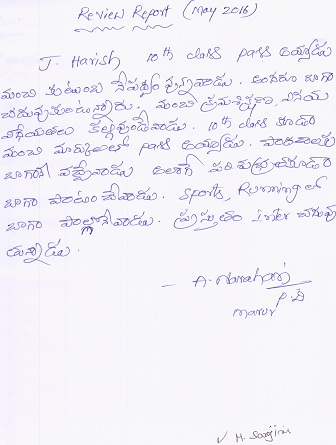 Review Report (May 2016)
J. Harish 10th class pass అయ్యాడు
మంచి కుటుంబ నేపథ్యం వున్నవాడు. అందరూ బాగా
చదువుకుంటున్నారు. మంచి క్రమశిక్షణ, వినయ
విధేయతలు కల్గివుండేవాడు. 10th class కూడా
మంచి మార్కులతో pass అయ్యాడు. పాఠశాలకు
బాగానే వచ్చేవాడు అలాగే పరిశుభ్రతకూడా
బాగా పాటించేవాడు. Sports, Running లో
బాగా పాల్గొనేవాడు. ప్రస్తుతం inter చదువు
తున్నాడు.
- A. Narahari
P.D